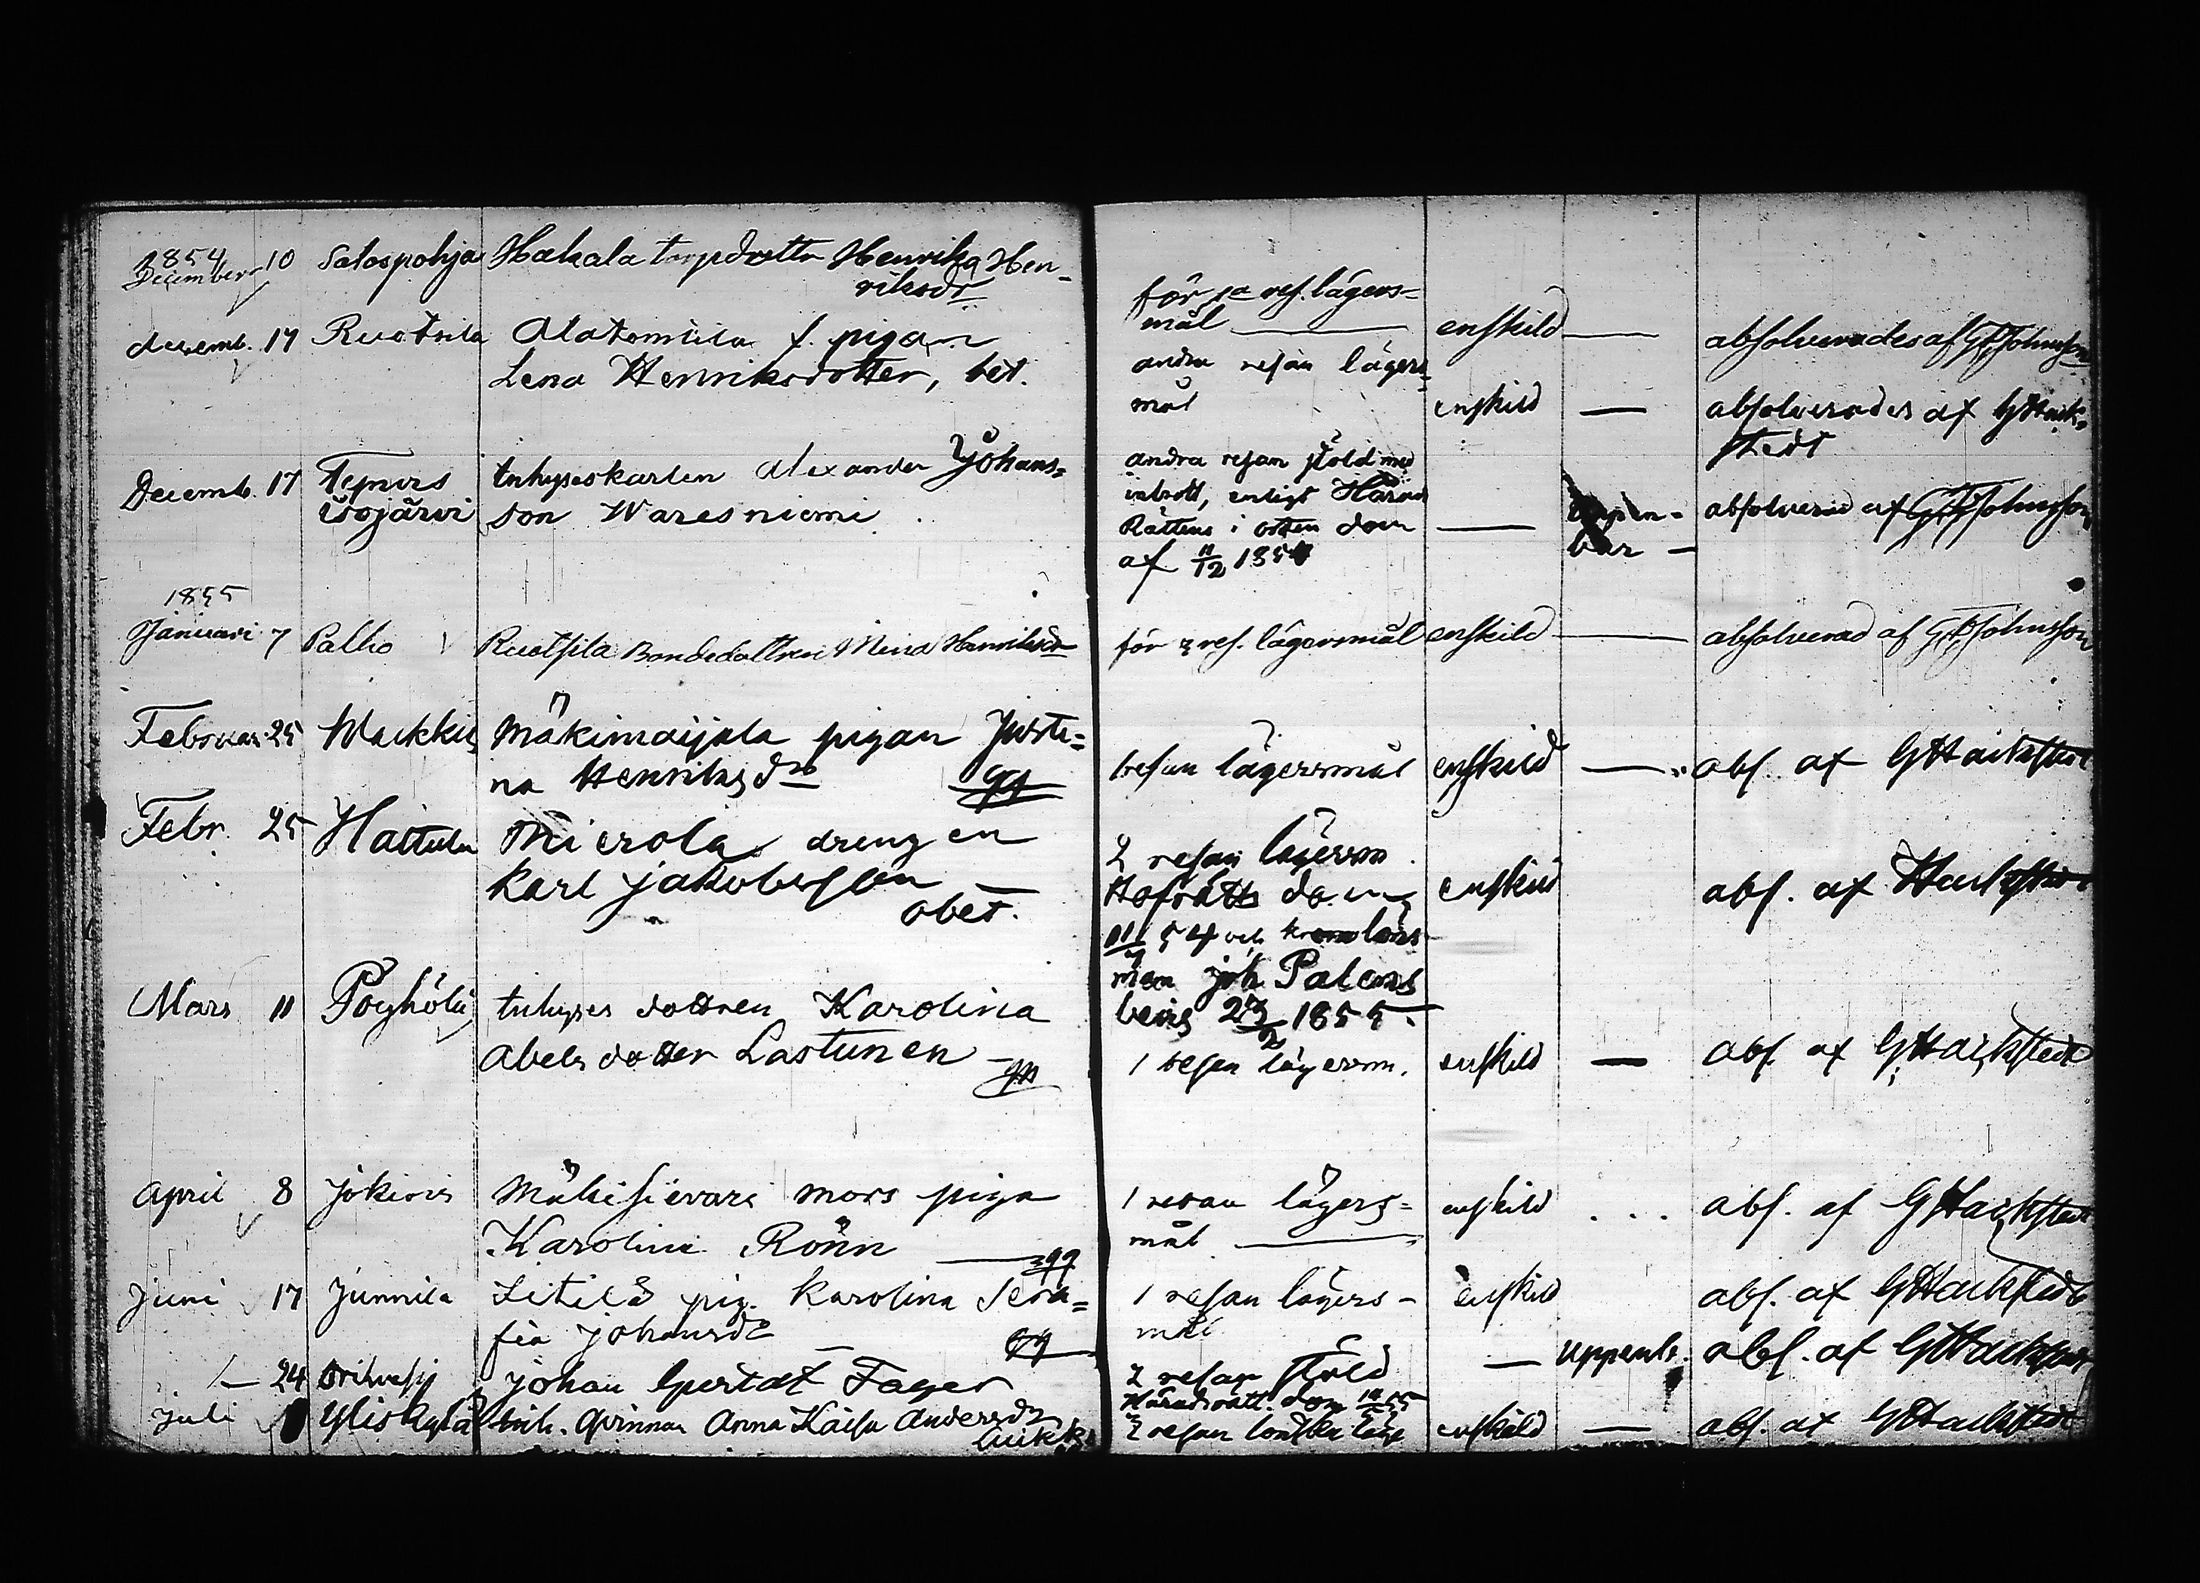 1854
December 10 Salospohja Hakala torpdottr Henrika Hen-
riksdr
för 1a res. lägers-
mål enskild — absolverades af G Johnsson
decemb. 17 Ruotsila Alatomtila f. pigan
Lena Henriksdotter, bet.
andra resan lägers-
mål enskild — absolverades af GHack-
stedt
Decemb. 17 isojärvi
Inhyseskarlen Alexander Johans-
son Waresniemi
andra resan stöld med
inbrott, enligt Härads
Rättens i orten dom
af 11/12 1854
— uppen-
bar — absolverad af G Johnsson
1855
Januari 7 Palho Ruotsila Bondedottren Mina Henriksdr
för res. lägersmål enskild — absolverad af G Johnsson
Februar 25 Mäkimaijala pigan Justi-
na Henriksdr
resan lägersmål enskild — abs. af GHackstedt
Febr. 25 Hattula Mierola drengen
Karl Jakobsson —
obet.
2 resan lägersm.
Hofrätts dom
54 och krono läns
men Joh
bevis 23/2 1855.
enskild abs. af Hackstedt
Mars 11 Pöyhölä Inhyses dottren Karolina
Abels dotter Lastunen —
1 resan lägersm. enskild — abs. af GHackstedt
April 8 Jokiois Mäkisievari mors piga
Karolina Rönn —
1 resan lägers-
mål — enskild . . . abs. af GHackstedt
Juni 17 Junnila pig. Karolina Sera-
fia Johansdr —
1 resan lägers-
mål enskild abs. af GHackstedt
— 24 Johan Gustaf Fager
2 resan stöld
Häradsrätt. dom
— uppenb. abs. af GHackstedt
Juli Yliskylä inh. qvinnan Anna Kaisa Andersdr
resan enskild — abs. af GHackstedt